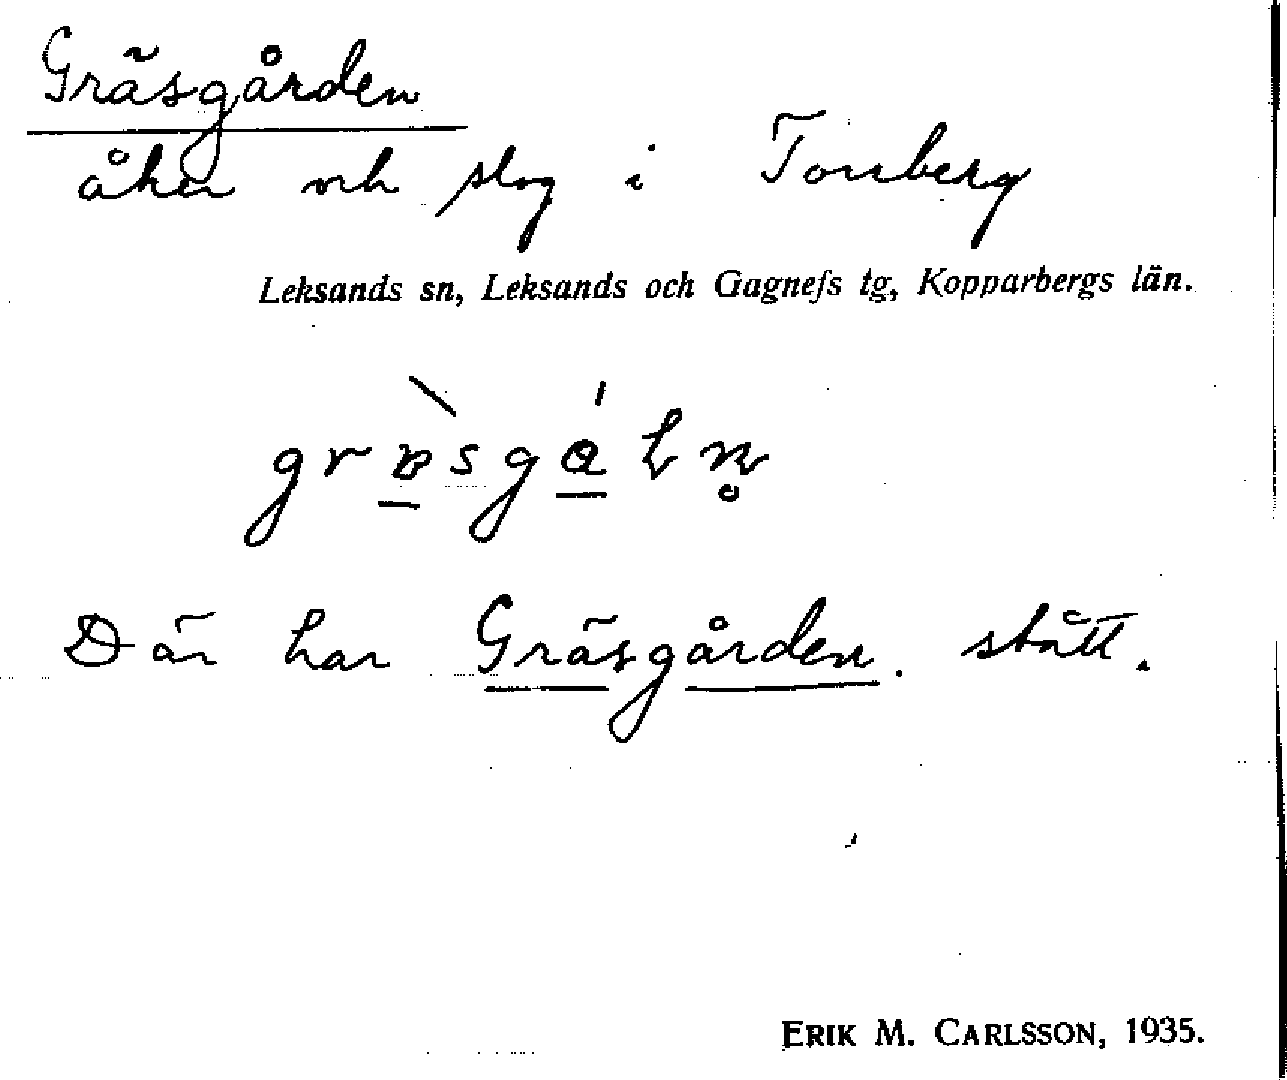 Gräsgården
åker och slog i Torrberg
Leksands sn, Leksands och Gagnefs tg, Kopparbergs län.
Där har Gräsgården. stått.
ERIK M. CARLSSON, 1935.